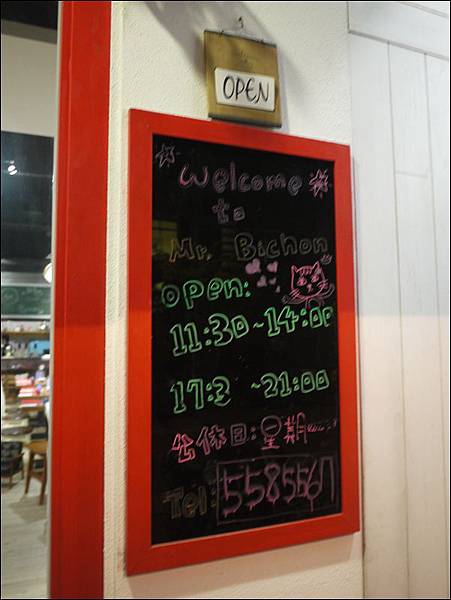 OPEN
Welcome
to
Mr. Bichon
open:
11:30~14:00
17:3 ~21:00
公休日:星期
Tel: 5585567